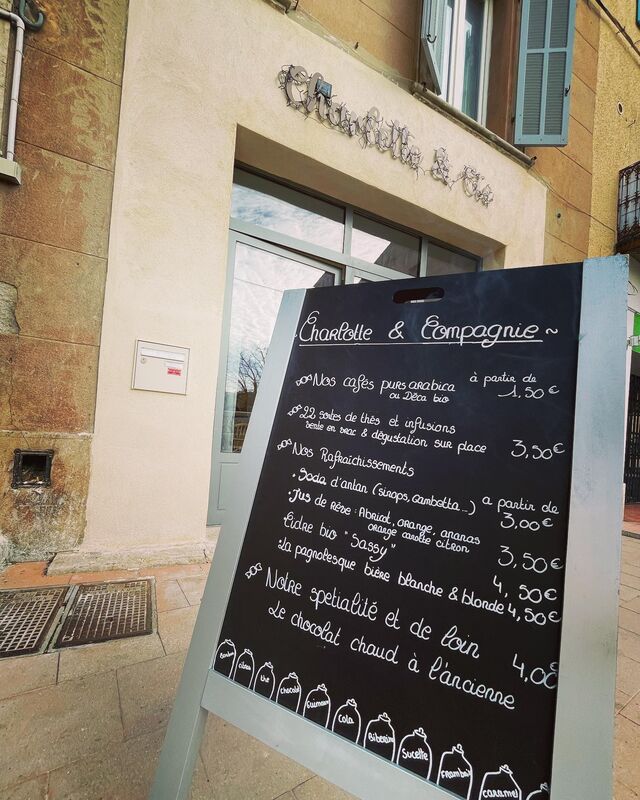 Charlotte & Cie
Charlotte & Compagnie ~
Nos cafés purs arabica à partir de
ou Déca bio 1,50€
22 sortes de thés et infusions
vente en vrac & dégustation sur place 3,50€
Nos Rafraichissements
• Soda d'antan (sirops, Gambetta...) a partir de
3,00€
• Jus de Rêve : Abricot, orange, ananas
orange carotte citron 3,50€
Cidre bio "Sassy" 4,50€
• La pagnolesque bière blanche & blonde 4,50€
Notre spetialité et de loin
Le chocolat chaud à l'ancienne 4,00€
thé
chocolat
Guimauve
Cola
Biberon
Sucette
Framboise
caramel